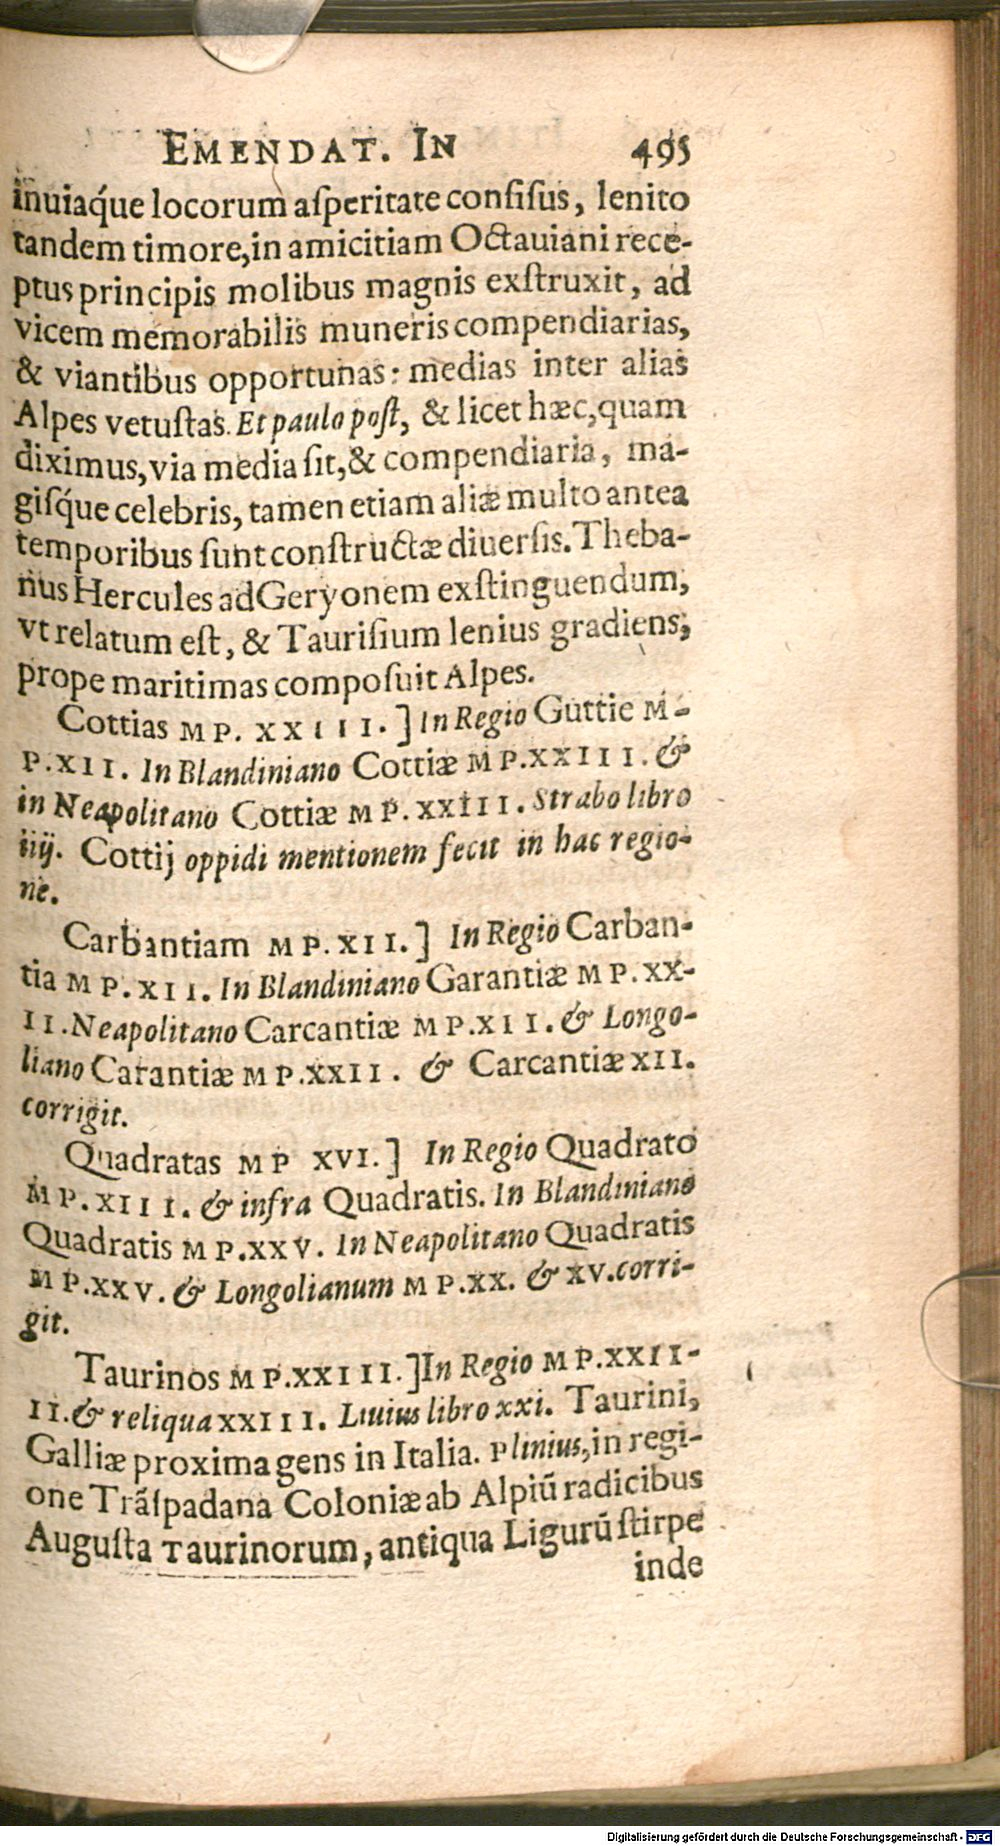 EMENDAT. IN 495
inuiaq́ue locorum aſperitate confiſus, lenito
tandem timore, in amicitiam Octauiani rece-
ptus principis molibus magnis exſtruxit, ad
vicem memorabilis muneris compendiarias,
& viantibus opportunas: medias inter alias
Alpes vetuſtas. Et paulo poſt, & licet hæc, quam
diximus, via media ſit, & compendiaria, ma-
giſq́ue celebris, tamen etiam aliæ multo antea
temporibus ſunt conſtructæ diuerſis. Theba-
nus Hercules ad Geryonem exſtinguendum,
vt relatum eſt, & Tauriſium lenius gradiens,
prope maritimas compoſuit Alpes.
Cottias MP. XXIII.] In Regio Guttie M-
P. XII. In Blandiniano Cottiæ MP. XXIII. &
in Neapolitano Cottiæ MP. XXIII. Strabo libro
iiij. Cottij oppidi mentionem fecit in hac regio-
ne.
Carbantiam MP. XII.] In Regio Carban-
tia MP. XII. In Blandiniano Garantiæ MP. XX-
II. Neapolitano Carcantiæ MP. XII. & Longo-
liano Carantiæ MP. XXII. & Carcantiæ XII.
corrigit.
Quadratas MP XVI.] In Regio Quadrato
MP. XIII. & infra Quadratis. In Blandiniano
Quadratis MP. XXV. In Neapolitano Quadratis
MP. XXV. & Longolianum MP. XX. & XV. corri-
git.
Taurinos MP. XXIII.] In Regio MP. XXII-
II. & reliqua XXIII. Liuius libro xxi. Taurini,
Galliæ proxima gens in Italia. Plinius, in regi-
one Trãſpadana Coloniæ ab Alpiũ radicibus
Auguſta Taurinorum, antiqua Ligurũ ſtirpe
inde
Digitalisierung gefördert durch die Deutsche Forschungsgemeinschaft - DFG